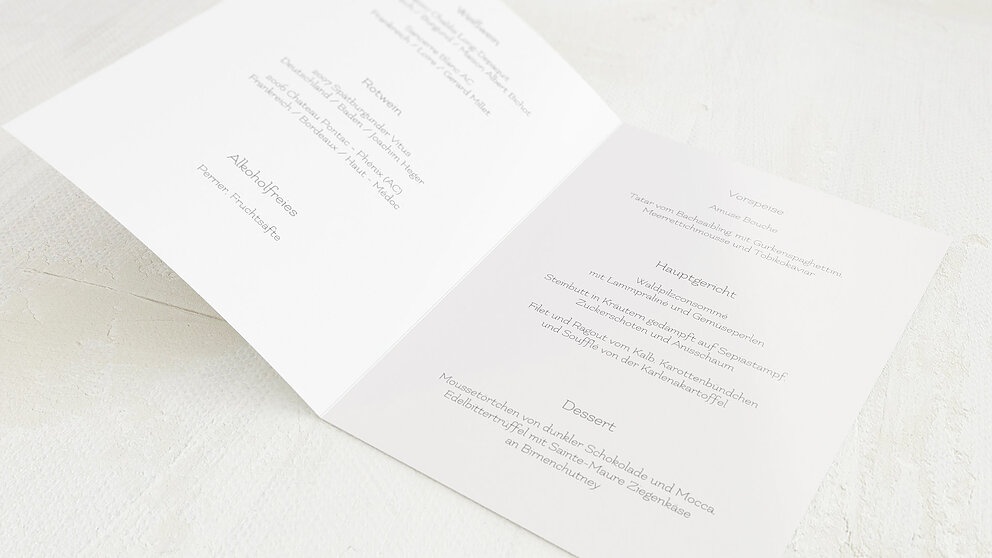 Weißwein
Chablis Long-Depaquit
/ Burgund / Maison Albert Bichot
Sancerre Blanc AC
Frankreich / Loire / Gerard Millet
Rotwein
2007 Spätburgunder Vitus
Deutschland / Baden / Joachim Heger
2006 Chateau Pontac - Phenix (AC)
Frankreich / Bordeaux / Haut - Medoc
Alkoholfreies
Perrier, Fruchtsäfte
Vorspeise
Amuse Bouche
Tatar vom Bachsaibling mit Gurkenspaghettini,
Meerrettichmousse und Tobikokaviar
Hauptgericht
Waldpilzconsommé
mit Lammpraline und Gemüseperlen
Steinbutt in Kräutern gedämpft auf Sepiastampf
Zuckerschoten und Anisschaum
Filet und Ragout vom Kalb, Karottenbündchen
und Souffle von der Karlenakartoffel
Dessert
Moussetörtchen von dunkler Schokolade und Mocca,
Edelbittertrüffel mit Sainte-Maure Ziegenkäse
an Birnenchutney